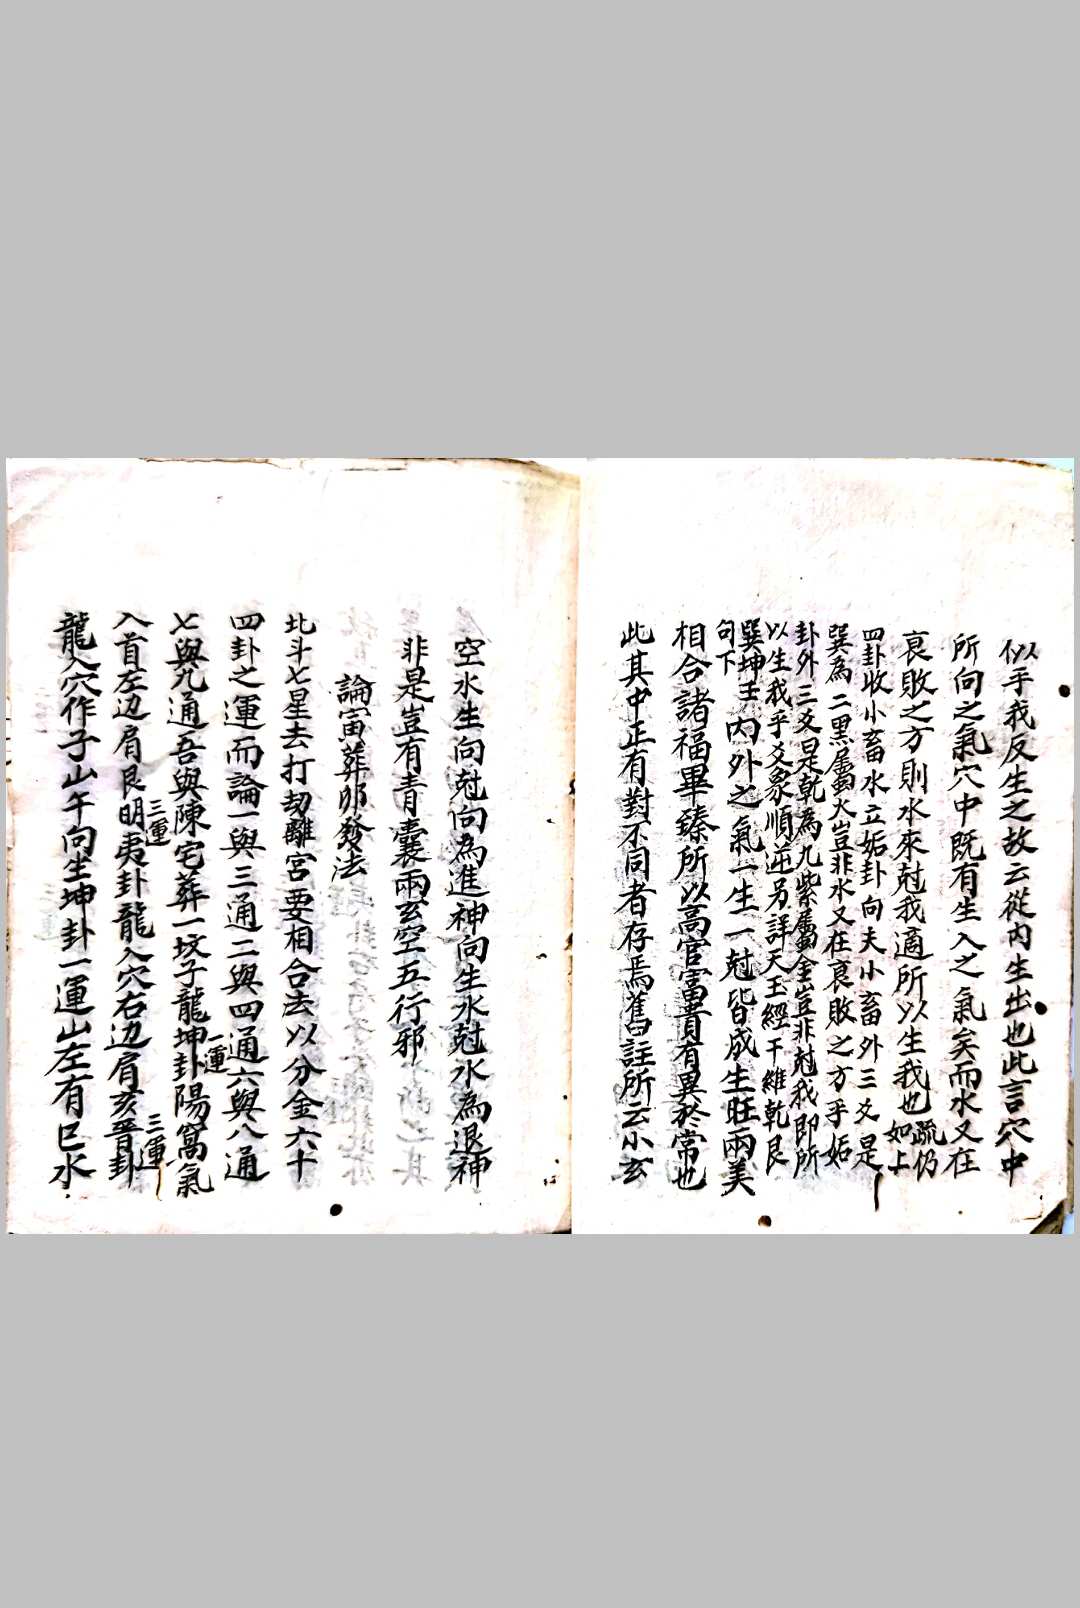 似乎我反生之故云從內生出也此言穴中
所向之氣穴中既有生入之氣矣而水又在
衰敗之方則水來尅我適所以生我也疏仍如上
四卦收小畜水立姤卦向夫小畜外三爻是
巽為二黑屬火豈非水又在衰敗之方乎姤
卦外三爻是乾為九紫屬金豈非尅我即所
以生我乎爻象順逆另詳天玉經干維乾艮
巽坤壬句下內外之氣一生一尅皆成生旺兩美
相合諸福畢臻所以高官富貴有異於常也
此其中正有對不同者存焉舊註所云小玄
空水生向尅向為進神向生水尅水為退神
非是豈有青囊兩玄空五行邪
論寅葬卯發法
北斗七星去打刼離宮要相合法以分金六十
四卦之運而論一與三通二與四通六與八通
七與九通吾與陳宅葬一坟子龍坤卦一運陽窩氣
入首左边肩艮明夷卦三運龍入穴右边肩亥晉卦三運
龍入穴作子山午向坐坤卦一運山左有巳水